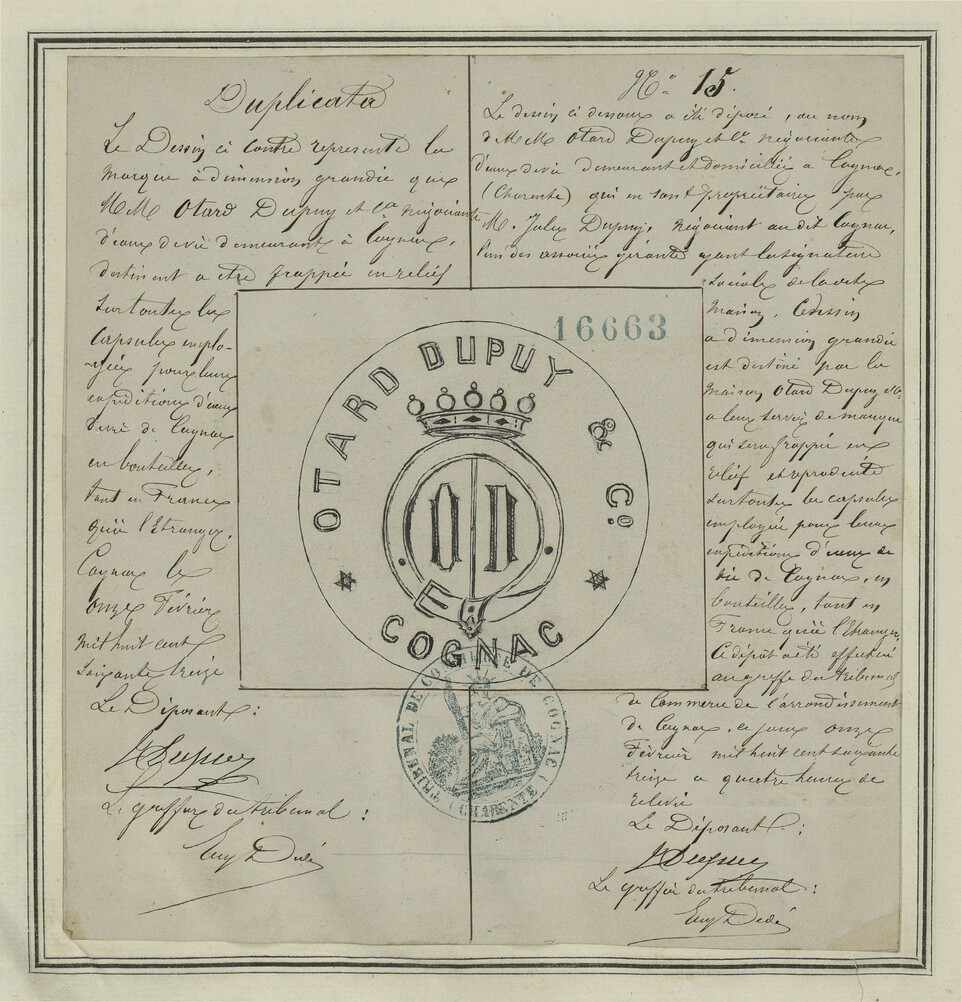 Duplicata
Le Dessin ci contre represente la
marque à dimension grandie que
MM Otard Dupuy et Cie négociants
d'eaux de vie demeurant à Cognac,
destinent a etre frappée en relief
sur toutes les
capsules emplo-
-yées pour leurs
expéditions d'eaux
de vie de Cognac
en bouteilles,
tant en France
qu'à l'Etranger.
Cognac le
onze Février
mil huit cent
soixante treize
Le Déposant:
J Dupuy
Le greffier du tribunal:
No 15.
Le dessin ci dessous a été déposé, au nom
de MM Otard Dupuy et Cie négociants
d'eaux de vie demeurant et domiciliés a Cognac,
(Charente) qui en sont propriétaires par
M. Jules Dupuy, négociant au dit Cognac,
l'un des associés gérants ayant la signature
sociale de la dite
maison. Ce dessin
a dimension grandie
est destiné par la
maison Otard Dupuy &Co
a leur servir de marque
qui sera frappée en
relief et reproduite
sur toutes les capsules
employées pour leurs
expéditions d'eaux de
vie de Cognac, en
bouteilles, tant en
France qu'à l'Etranger.
Ce dépôt a été effectué
au greffe du tribunal
de Commerce de l'arrondissement
de Cognac, ce jour onze
Février mil huit cent soixante
treize a quatre heures de
relevée
Le Déposant:
J Dupuy
Le greffier du tribunal:
16663
OTARD DUPUY & Co
OD
COGNAC
TRIBUNAL DE COMMERCE DE COGNAC
(CHARENTE)